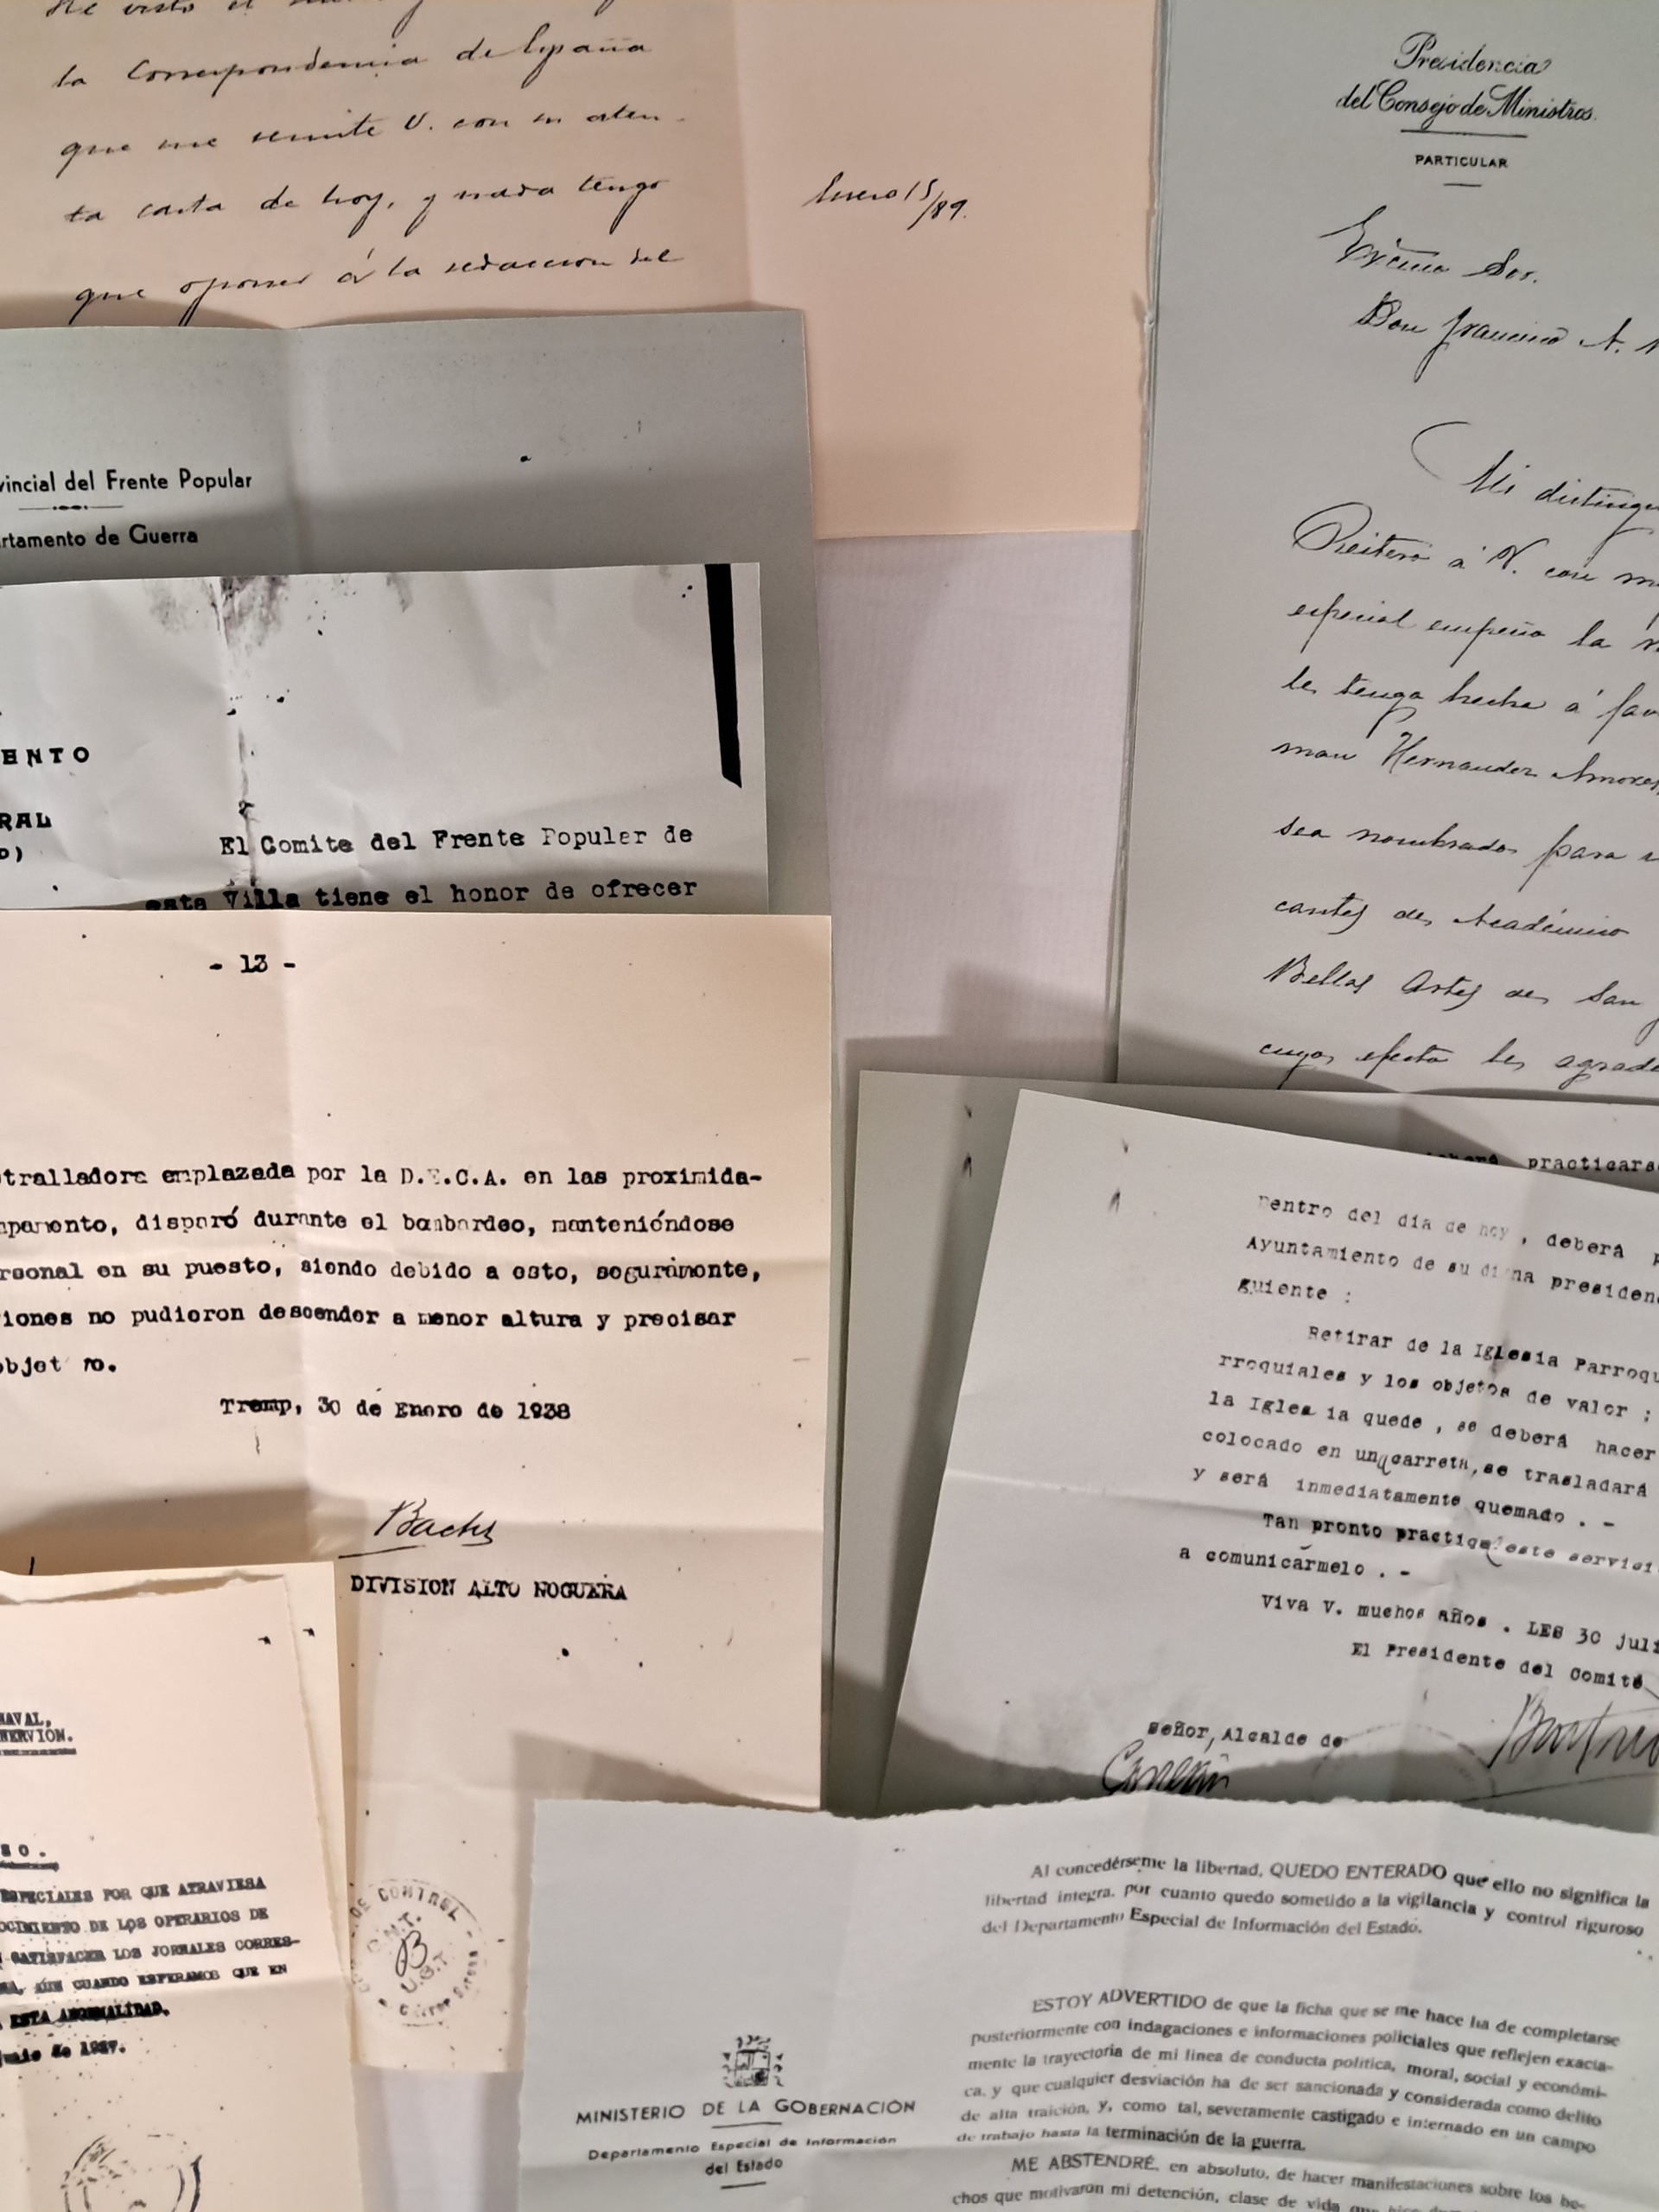 he visto el
la Correspondencia de España
que me remite V. con su aten-
ta carta de hoy, y nada tengo
que oponer á la redaccion del
Enero 15/89.
Presidencia
del Consejo de Ministros.
PARTICULAR
Excmo Sor.
Don Francisco A.
Mi distingu
Reitero á V. con m
especial empeño la
le tengo hecha á fav
man Hernandez Amores
sea nombrado para
cantes de Académico
Bellas Artes de San
cuyo efecto le agrade
vincial del Frente Popular
rtamento de Guerra
ENTO
RAL
O)
El Comite del Frente Popular de
esta Villa tiene el honor de ofrecer
- 13 -
tralladora emplazada por la D.E.C.A. en las proximida-
mpamento, disparó durante el bombardeo, manteniéndose
rsonal en su puesto, siendo debido a esto, seguramente,
iones no pudieron descender a menor altura y precisar
objet o.
Tremp, 30 de Enero de 1938
Bachs
DIVISION ALTO NOGUERA
practicars
Dentro del dia de hoy , deberá p
Ayuntamiento de su digna presiden
guiente :
Retirar de la Iglesia Parroqu
rroquiales y los objetos de valor ;
la Igles ia quede , se deberá hacer
colocado en una carreta, se trasladará
y será inmediatamente quemado . -
Tan pronto practique este servici
a comunicármelo . -
Viva V. muchos años . LES 30 juli
El Presidente del Comité
señor, Alcalde de
NAVAL,
NERVION.
S O .
ESPECIALES POR QUE ATRAVIESA
OCIMIENTO DE LOS OPERARIOS DE
SATISFACER LOS JORNALES CORRES-
AUN CUANDO ESPERAMOS QUE EN
ESTA ANORMALIDAD.
unio de 1937.
DE CONTROL
C.N.T.
B
U.G.T.
Al concedérseme la libertad, QUEDO ENTERADO que ello no significa la
libertad integra, por cuanto quedo sometido a la vigilancia y control riguroso
del Departamento Especial de Información del Estado.
ESTOY ADVERTIDO de que la ficha que se me hace ha de completarse
posteriormente con indagaciones e informaciones policiales que reflejen exacta-
mente la trayectoria de mi línea de conducta política, moral, social y económi-
ca, y que cualquier desviación ha de ser sancionada y considerada como delito
de alta traición, y, como tal, severamente castigado e internado en un campo
de trabajo hasta la terminación de la guerra.
ME ABSTENDRÉ, en absoluto, de hacer manifestaciones sobre los he-
chos que motivaron mi detención, clase de vida que
MINISTERIO DE LA GOBERNACIÓN
Departamento Especial de Información
del Estado